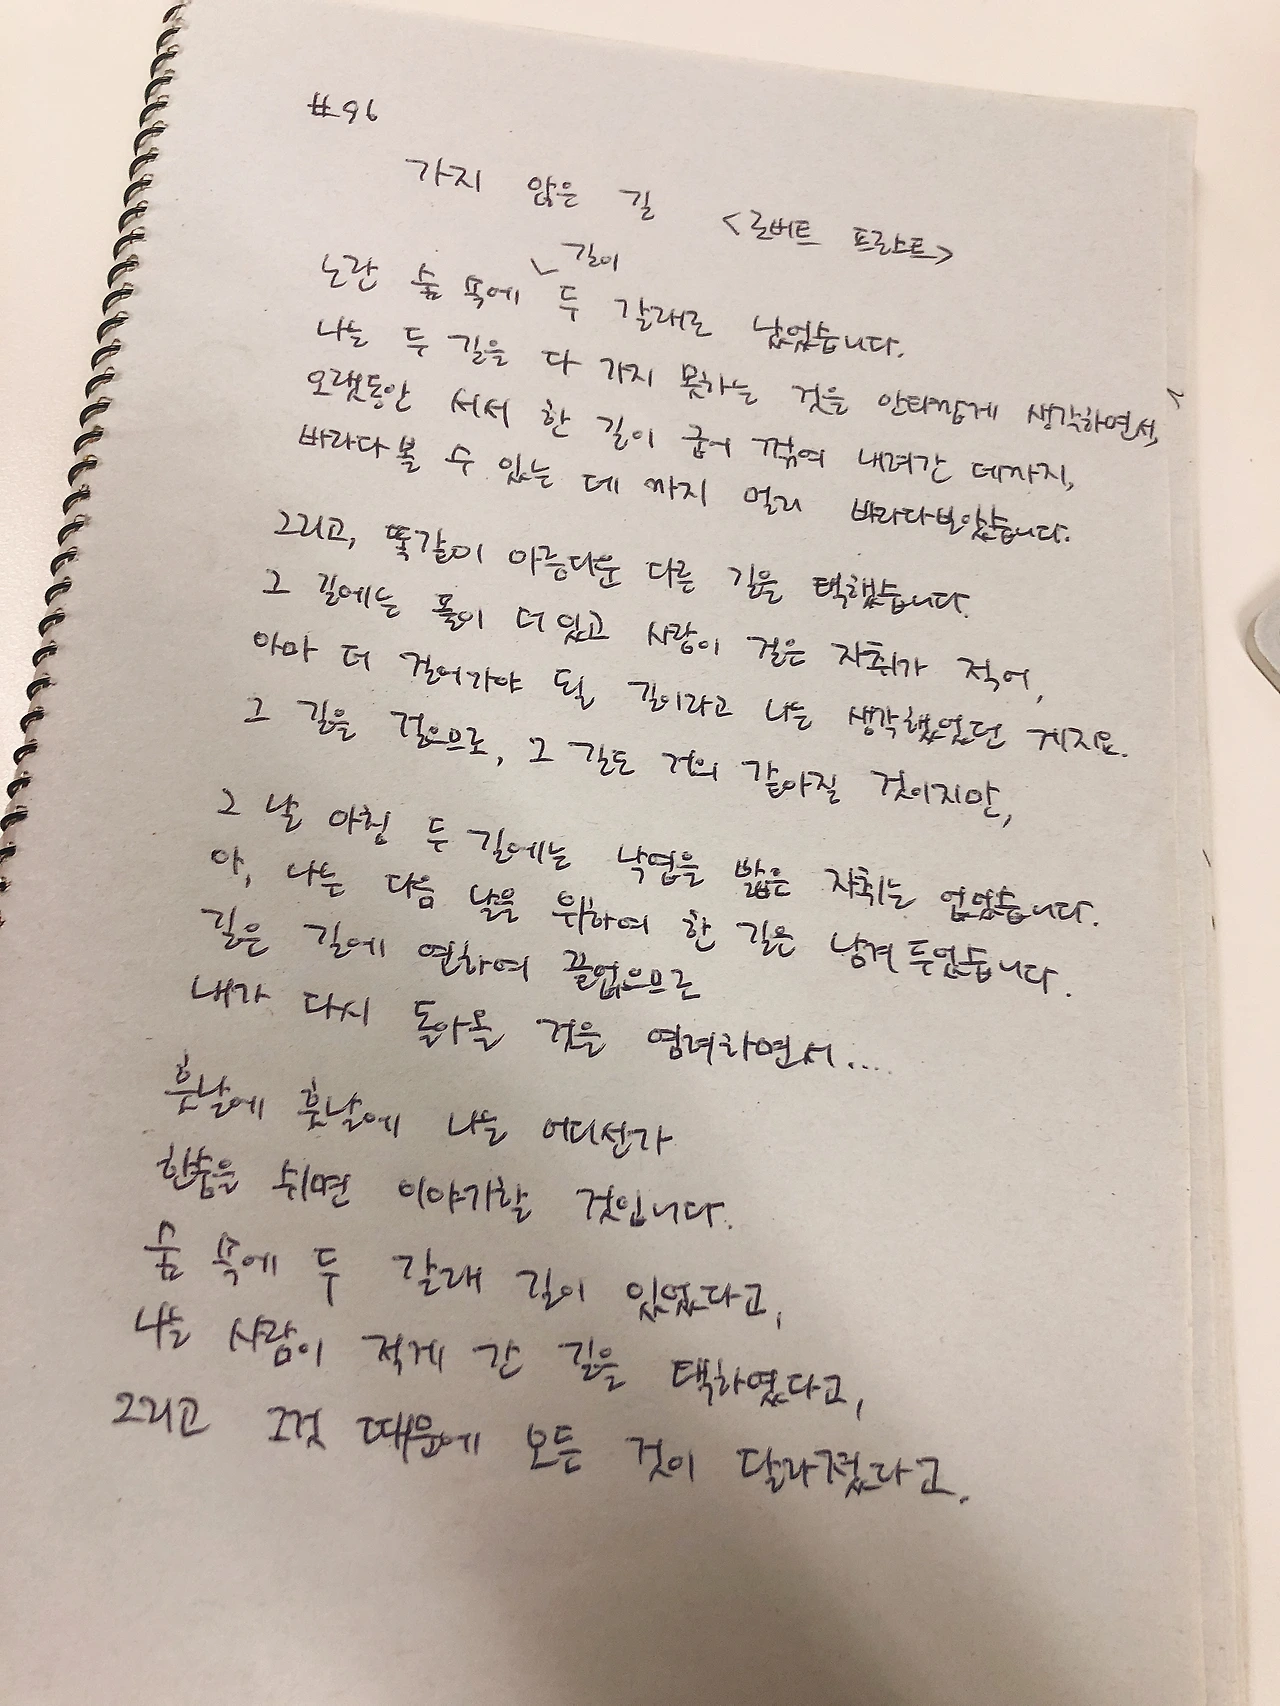 #96
가지 않은 길 <로버트 프로스트>
노란 숲 속에 ∨길이 두 갈래로 났었습니다.
나는 두 길을 다 가지 못하는 것을 안타깝게 생각하면서,
오랫동안 서서 한 길이 굽어 꺾여 내려간 데까지,
바라다볼 수 있는 데 까지 멀리 바라다보았습니다.
그리고, 똑같이 아름다운 다른 길을 택했습니다.
그 길에는 풀이 더 있고 사람이 걸은 자취가 적어,
아마 더 걸어가야 될 길이라고 나는 생각했었던 게지요.
그 길을 걸으므로, 그 길도 거의 같아질 것이지만,
그 날 아침 두 길에는 낙엽을 밟은 자취는 없었습니다.
아, 나는 다음 날을 위하여 한 길은 남겨 두었습니다.
길은 길에 연하여 끝없으므로
내가 다시 돌아올 것을 염려하면서....
훗날에 훗날에 나는 어디선가
한숨을 쉬면 이야기할 것입니다.
숲 속에 두 갈래 길이 있었다고,
나는 사람이 적게 간 길을 택하였다고,
그리고 그것 때문에 모든 것이 달라졌다고.